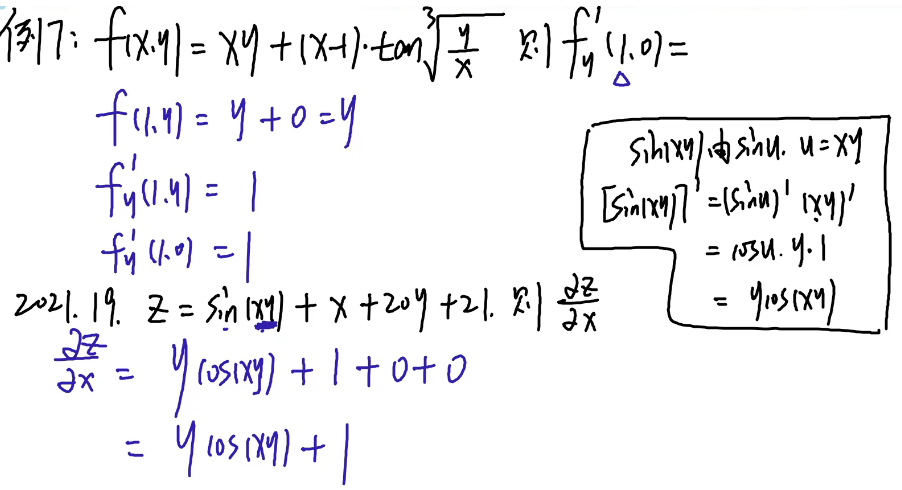 例17: f(x,y) = xy + (x-1)·tan∛(y/x) 则 f'y(1,0) =
f(1,y) = y + 0 = y
f'y(1,y) = 1
f'y(1,0) = 1
sin(xy) 由 sinu. u = xy
[sin(xy)]' = (sinu)' (xy)'
= cosu. y·1
= ycos(xy)
2021.19. z = sin(xy) + x + 20y + 21. 则 ∂z/∂x
∂z/∂x = ycos(xy) + 1 + 0 + 0
= ycos(xy) + 1